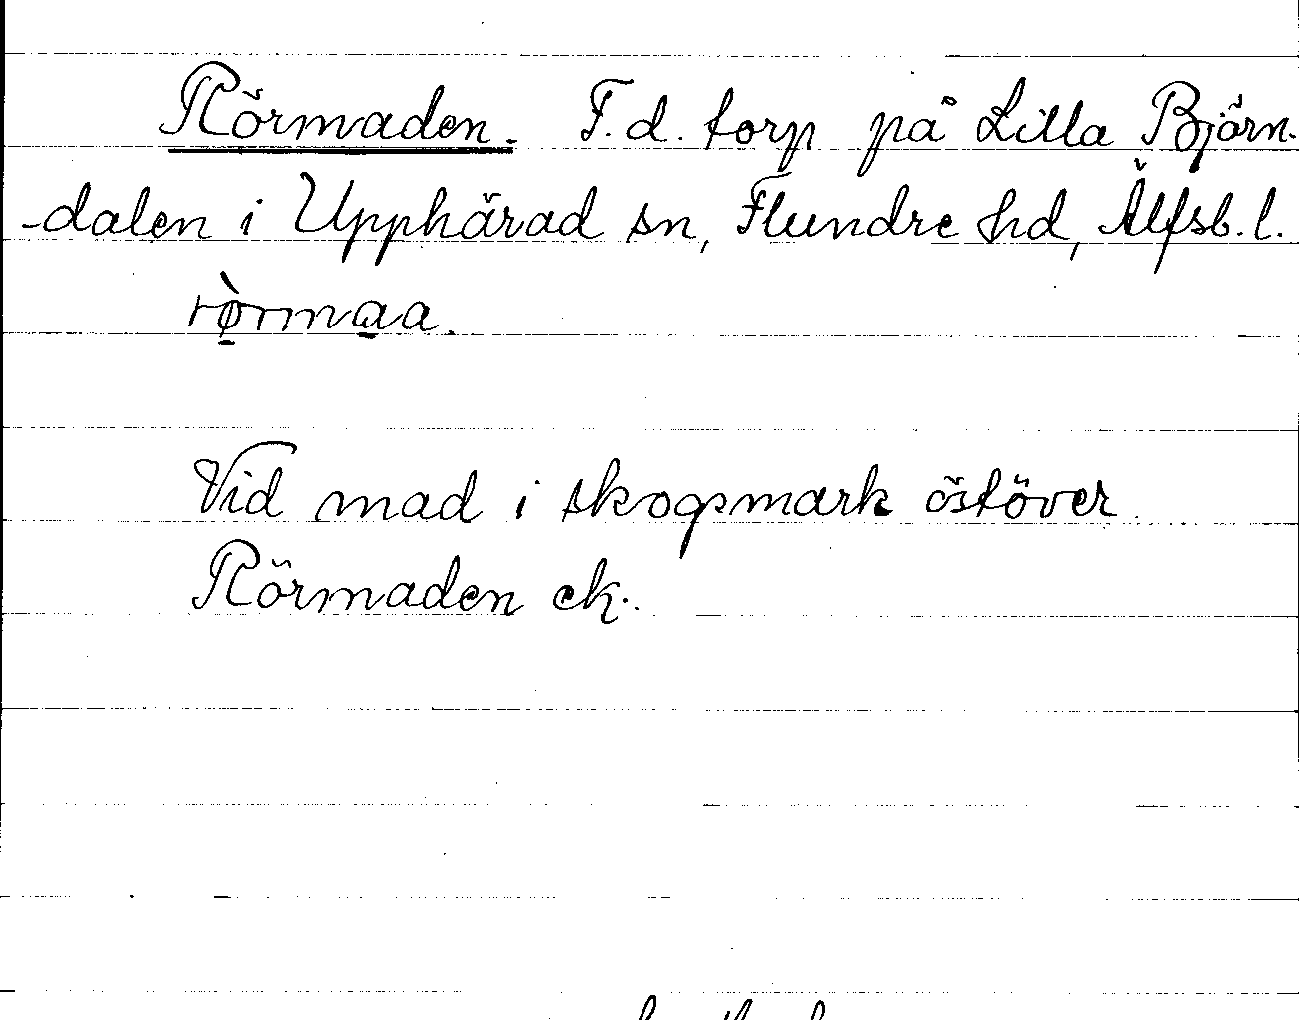 Rörmaden. F.d. torp på Lilla Björn-
-dalen i Upphärad sn, Flundre hd, Älfsb. l.
rø̀rmaa.
Vid mad i skogsmark östöver
Rörmaden ek.